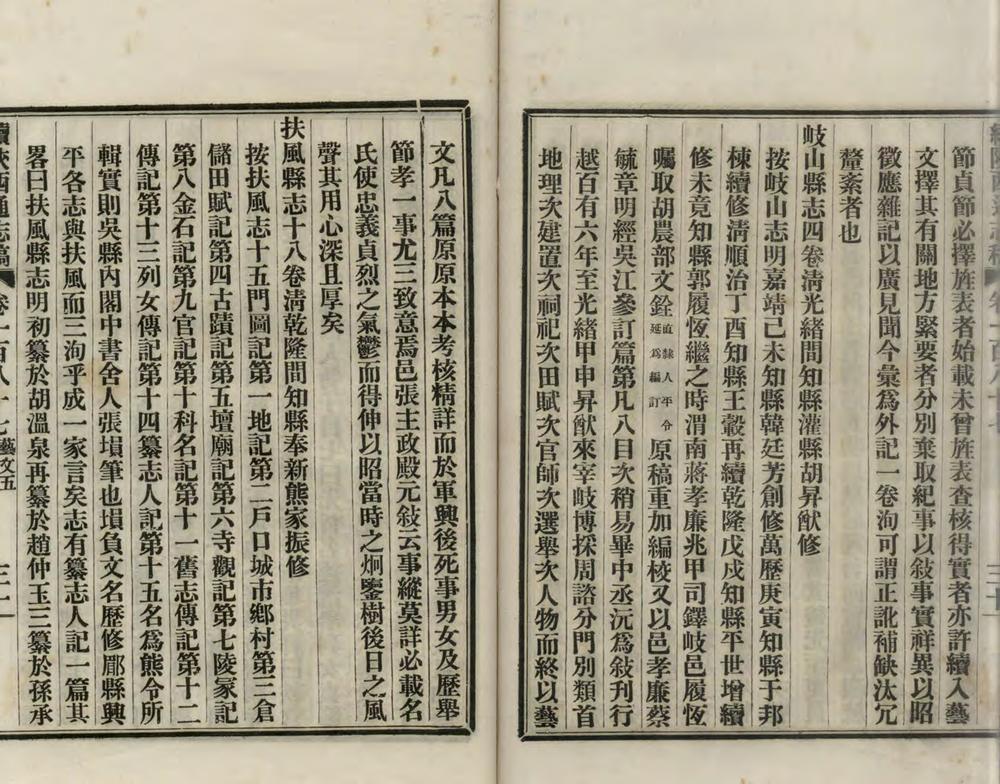 節貞節必擇旌表者始載未曾旌表查核得實者亦許續入藝
文擇其有關地方緊要者分別棄取紀事以敍事實祥異以昭
徵應雜記以廣見聞今彙爲外記一卷洵可謂正訛補缺汰冗
釐紊者也
岐山縣志四卷淸光緒間知縣灌縣胡昇猷修
按岐山志明嘉靖己未知縣韓廷芳創修萬歷庚寅知縣于邦
棟續修淸順治丁酉知縣王轂再續乾隆戊戌知縣平世增續
修未竟知縣郭履恆繼之時渭南蔣孝廉兆甲司鐸岐邑履恆
囑取胡農部文銓直隸人平令延爲編訂原稿重加編校又以邑孝廉蔡
毓章明經吳江參訂篇第凡八目次稍易畢中丞沅爲敍刊行
越百有六年至光緒甲申昇猷來宰岐博採周諮分門別類首
地理次建置次祠祀次田賦次官師次選舉次人物而終以藝
文凡八篇原原本本考核精詳而於軍興後死事男女及歷舉
節孝一事尤三致意焉邑張主政殿元敍云事縱莫詳必載名
氏使忠義貞烈之氣鬱而得伸以昭當時之炯鑒樹後日之風
聲其用心深且厚矣
扶風縣志十八卷淸乾隆間知縣奉新熊家振修
按扶風志十五門圖記第一地記第二戶口城市鄉村第三倉
儲田賦記第四古蹟記第五壇廟記第六寺觀記第七陵冢記
第八金石記第九官記第十科名記第十一舊志傳記第十二
傳記第十三列女傳記第十四纂志人記第十五名爲熊令所
輯實則吳縣內閣中書舍人張塤筆也塤負文名歷修郿縣興
平各志與扶風而三洵乎成一家言矣志有纂志人記一篇其
畧曰扶風縣志明初纂於胡溫泉再纂於趙仲玉三纂於孫承
續陝西通志稿 卷一百八十七 藝文五